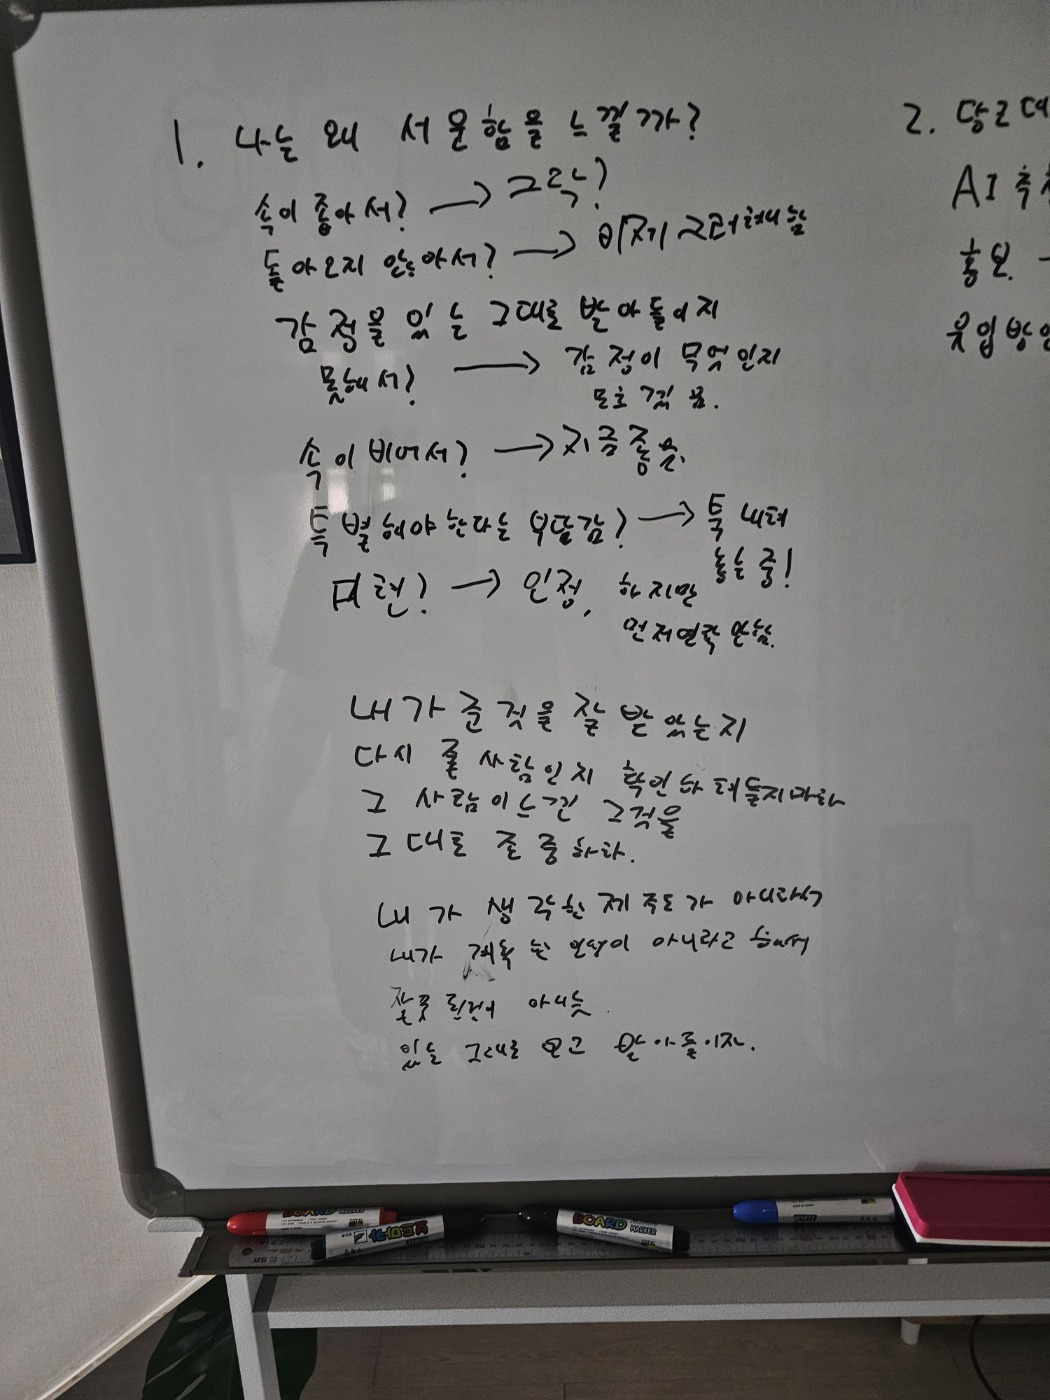 1. 나는 왜 서운함을 느낄까?
속이 좁아서? → 그닥?
돌아오지 않아서? → 이제 그러려니함
감정을 있는 그대로 받아들이지
못해서? → 감정이 무엇인지
모호
속이 비어서? → 지금 좋음.
특별해야 한다는 부담감? → 툭 내려
놓는 중!
미련? → 인정, 하지만
먼저 연락 안함.
내가 준 것을 잘 받았는지
다시 줄 사람인지 확인하려 들지마라
그 사람이 느낀 그것을
그대로 존중하라.
내가 생각한 제주도가 아니라서
내가 계획한 인생이 아니라고 해서
잘못된 것이 아니듯
있는 그대로 보고 받아들이자.
2. 당근
AI
홍보